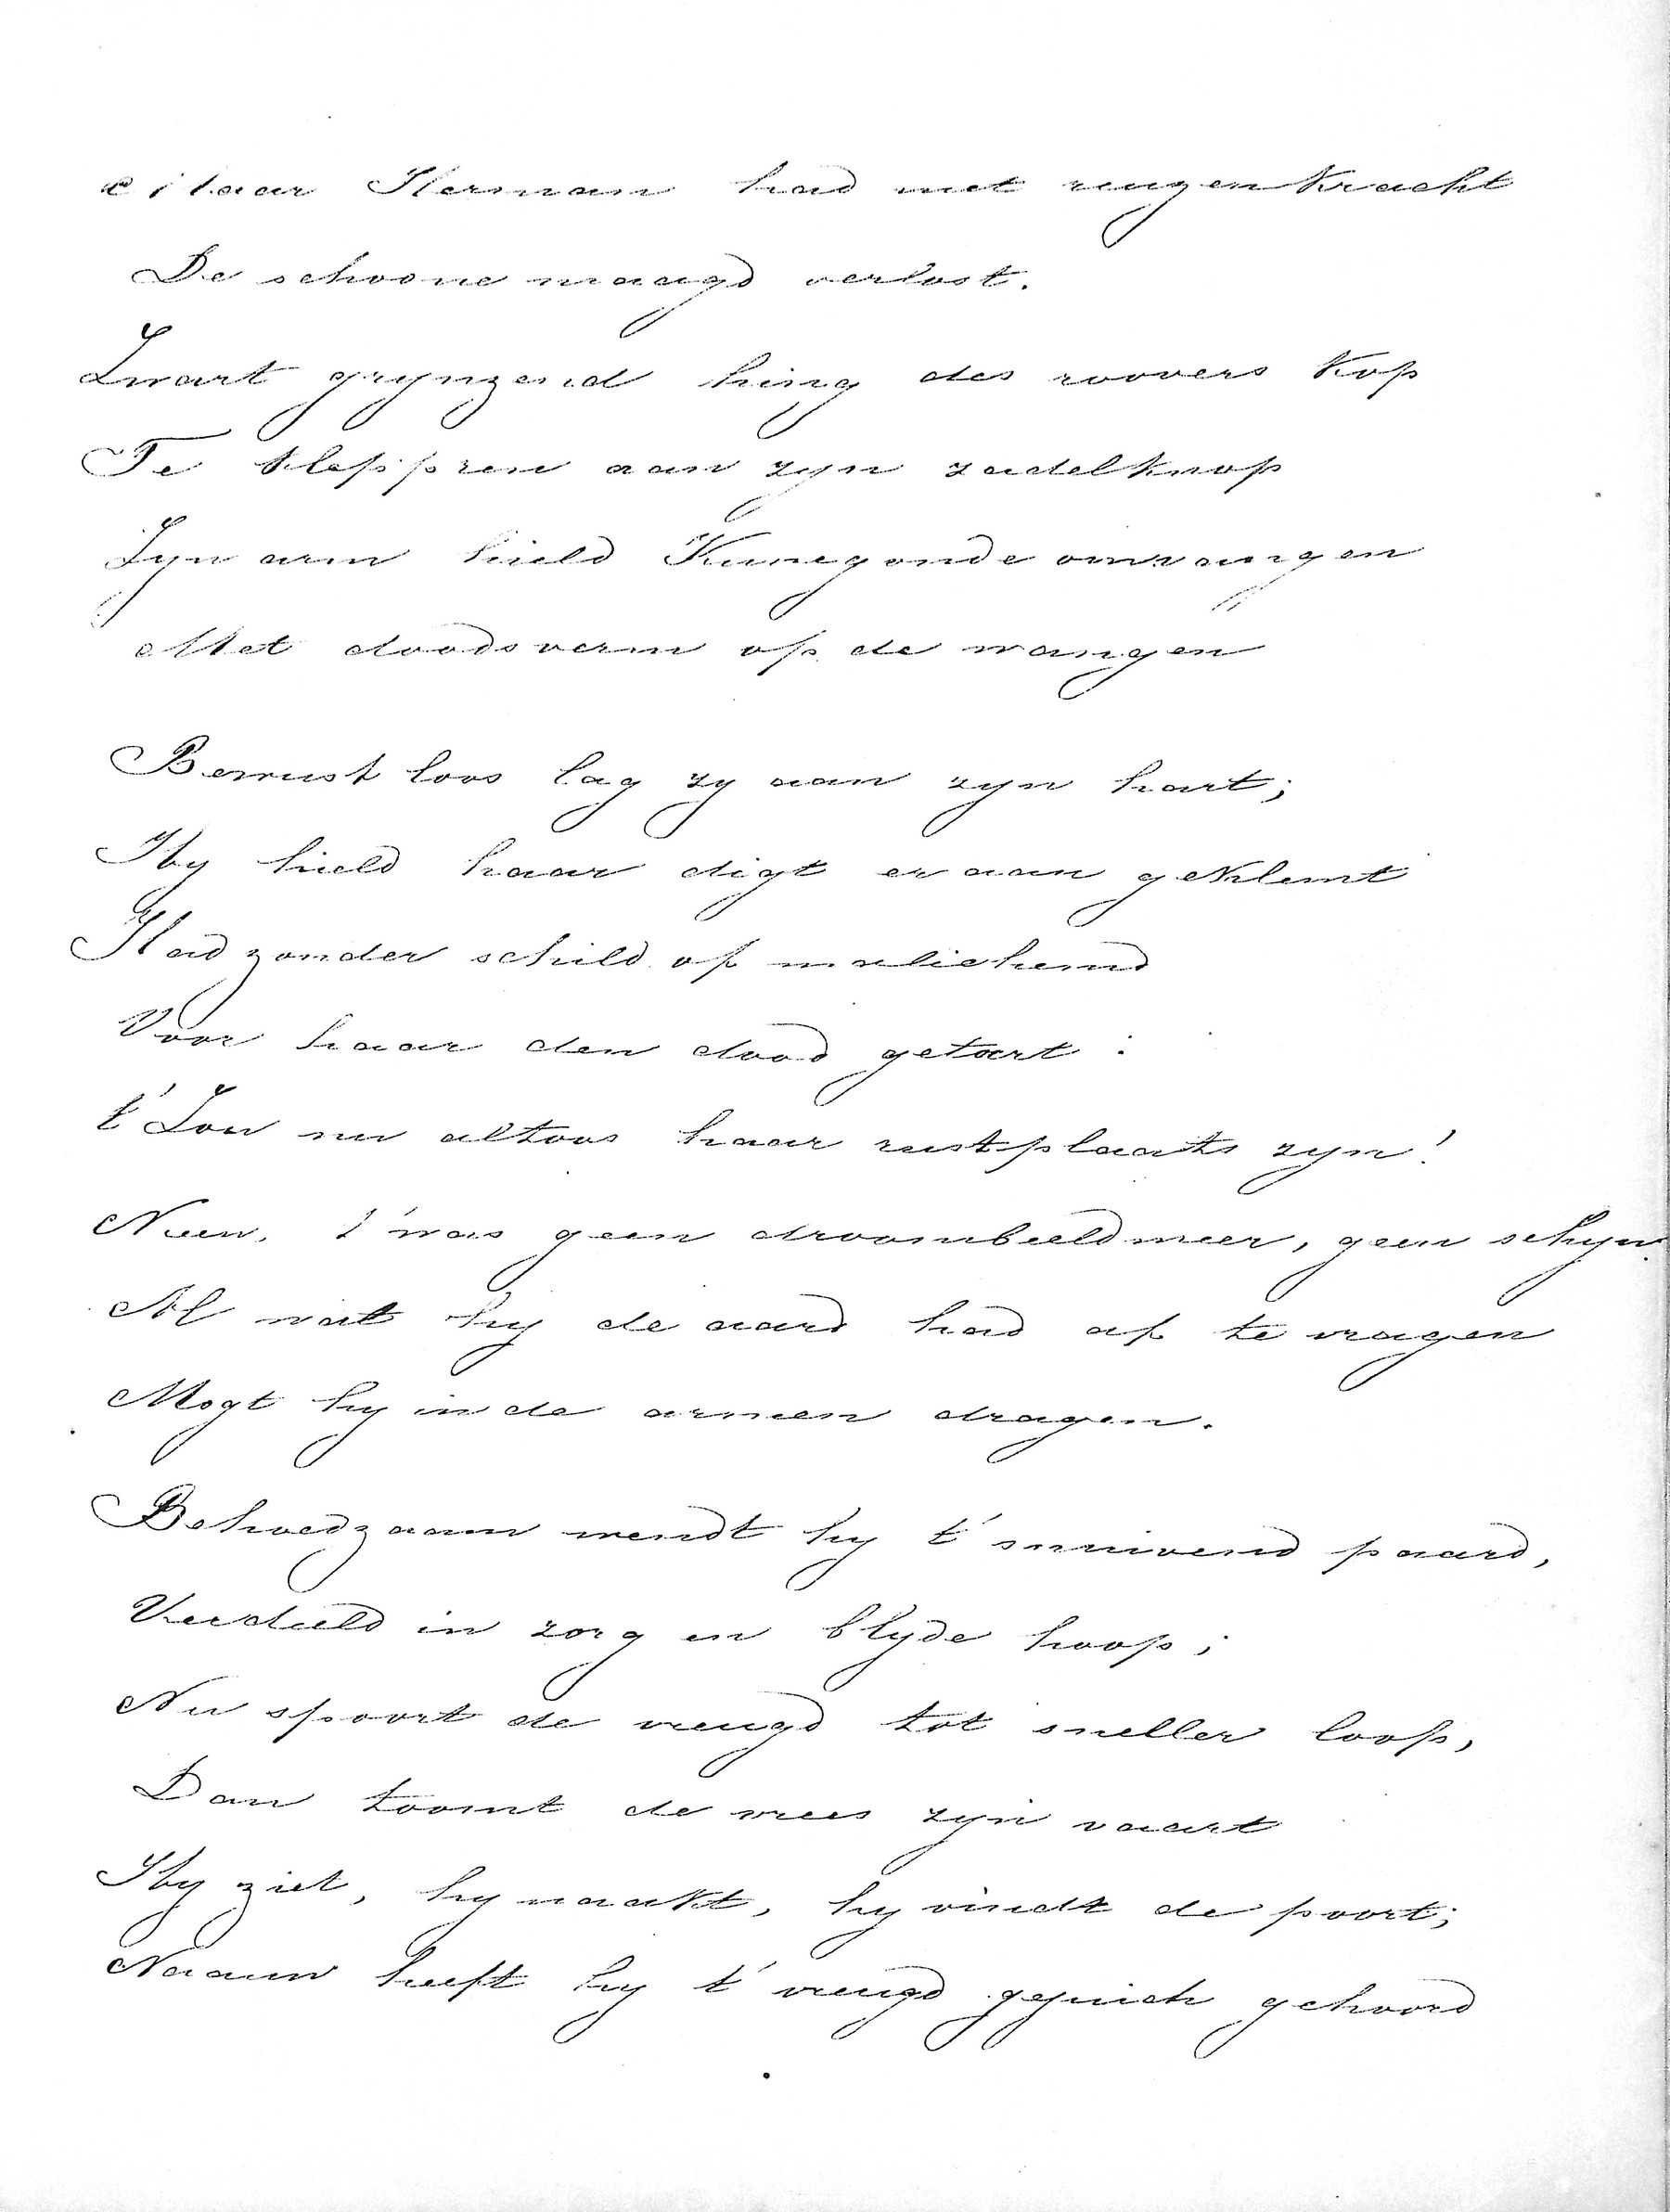 Maar Herman had met reuzenkracht
De schoone maagd verlost.
Zwart grynzend hing des roovers kop
Te kleppren aan zyn zadelknop
Zyn arm hield Kunegonde omvangen
Met doodsverw op de wangen
Bewust loos lag zy aan zyn hart;
Hy hield haar digt er aan geklemt
Had zonder schild of maliehemd
Voor haar den dood getart:
t' Zou nu altoos haar rustplaats zyn!
Neen, t'was geen droombeeld meer, geen schyn.
Al wat hy de aard had af te vragen
Mogt hy in de armen dragen.
Behoedzaam wendt hy t' snuivend paard,
Verdeeld in zorg en blyde hoop;
Nu spoort de vreugd tot sneller loop,
Dan toomt de vrees zyn vaart
Hy ziet, hy naakt, hy vindt de poort;
Naauw heeft hy t' vreugd gejuich gehoord